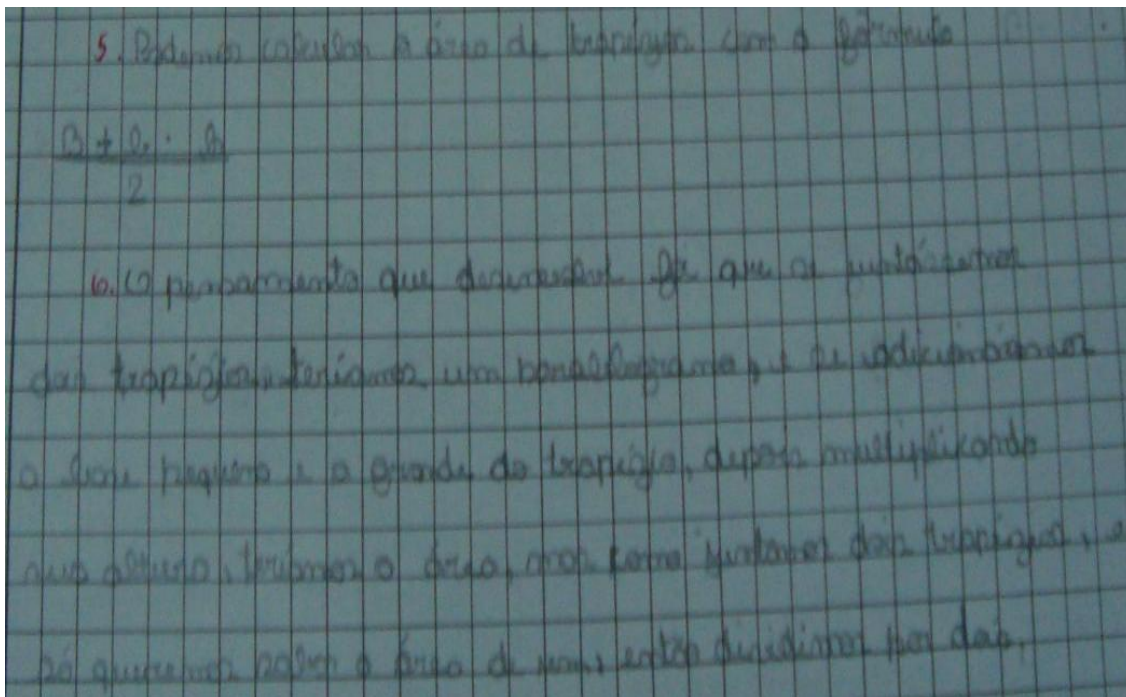 5. Podemos calcular a área de trapézios com a fórmula
B + b . h
2
6. O pensamento que desenvolvi foi que se juntássemos
dois trapézios, teríamos um paralelogramo, e se adicionássemos
a base pequena e a grande do trapézio, depois multiplicando
sua altura, teríamos a área, mas como juntamos dois trapézios, e
só queremos saber a área de um, então dividimos por dois.